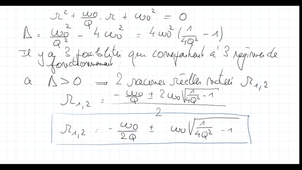 r² + ω₀/Q . r + ω₀² = 0
Δ = ω₀²/Q² - 4ω₀² = 4ω₀² (1/4Q² - 1)
Il y a 3 possibilités qui correspondent à 3 régimes de
fonctionnement
a Δ > 0 — 2 racines réelles notées r₁,₂
r₁,₂ = (- ω₀/Q ± 2ω₀ √(1/4Q² - 1)) / 2
r₁,₂ = - ω₀/2Q ± ω₀ √(1/4Q² - 1)